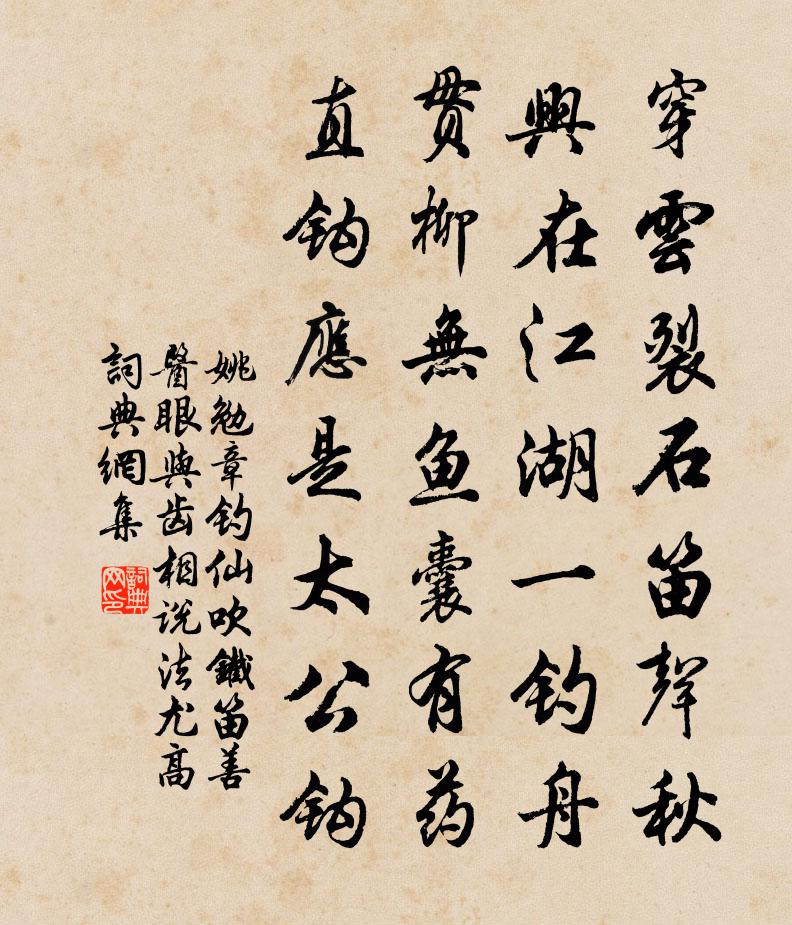 穿雲裂石笛聲秋
興在江湖一钓舟
貫柳無鱼囊有药
直鈎應是太公鈎
姚勉章钓仙吹鐵笛善
醫眼與齿相说法尤高
詞典網集
詞典
网印